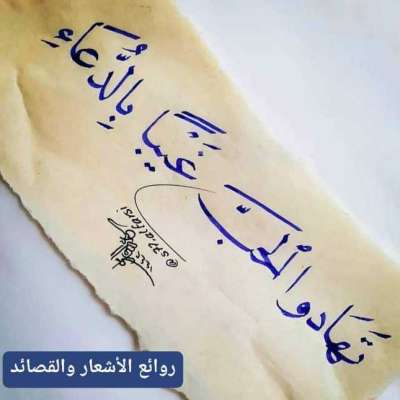 تَهَادَوا الْحُبَّ غَيْبًا بِالدُّعَاءِ
@s77alfarsi
روائع الأشعار والقصائد